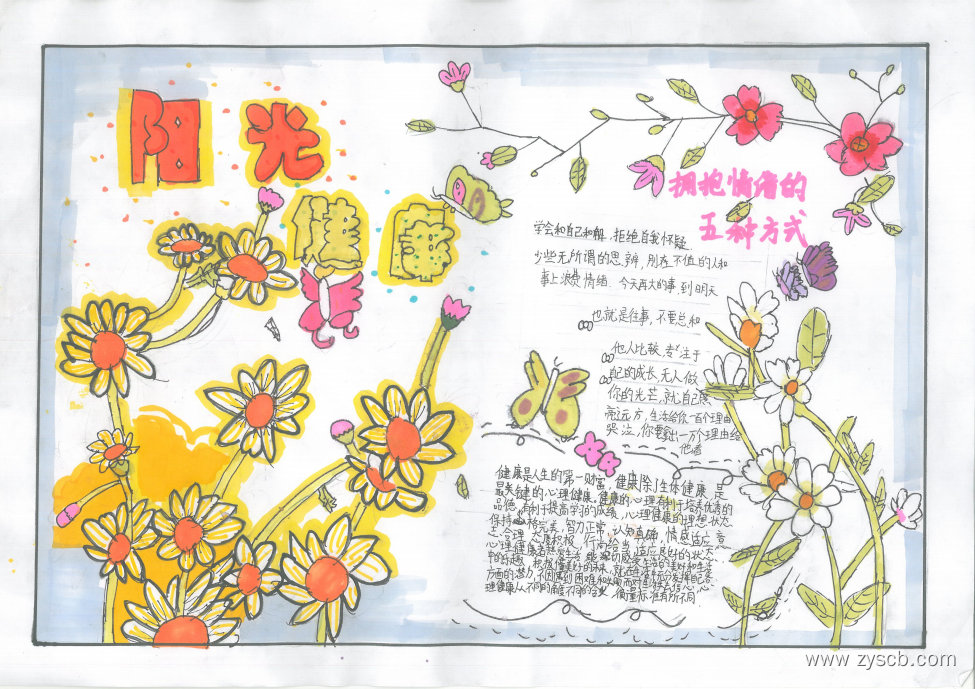 阳光
健康
拥抱情绪的
五种方式
学会和自己和解,拒绝自我怀疑
少些无所谓的思辨,别在不值的人和
事上浪费情绪.今天再大的事,到明天
也就是往事,不要总和
他人比较,专注于
自己的成长,无人做
你的光芒,就自己照
亮远方,生活给你一百个理由
哭泣,你要给出一万个理由给
他看
健康是人生的第一财富,健康除身体健康,是
最关键的心理健康.健康的心理有利于培养优秀的
品德,有利于提高学习的成绩,心理健康的理想状态
保持 格完美,智力正常,认知正确,情感适应,意
志合理,态度积极,行为恰当,适应良好的状态.
心理健康
理健康从不同的角度不同的含义,衡量标准有所不同
www.zyscb.com